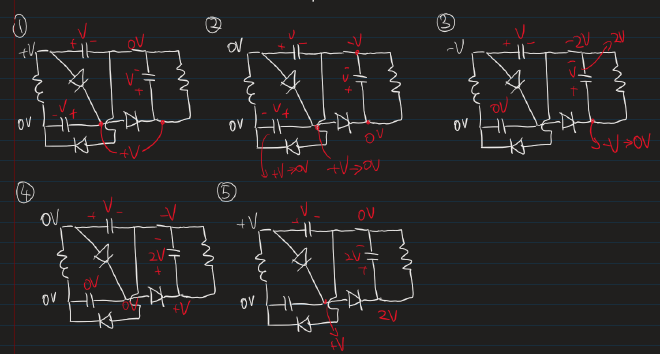 ①
+V
+ V -
0V
V
-
+
- V +
0V
+V
②
0V
+ V -
-V
V
-
+
- V +
0V
0V
+V→0V
+V→0V
③
-V
+ V -
-2V
2V
V
-
+
0V
0V
-V→0V
④
0V
+ V -
-V
-
2V
+
0V
0V
0V
+V
⑤
+V
+ V -
0V
-
2V
+
0V
2V
+V